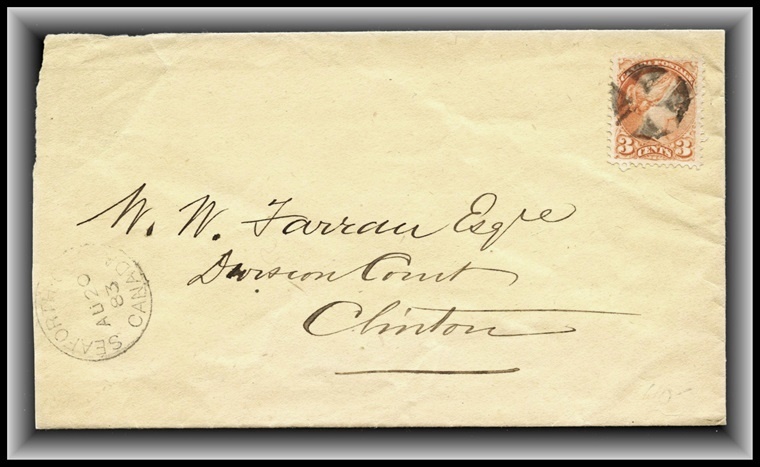 POSTAGE
3 CENTS 3
W. W. Farran Esqre
Division Court
Clinton
SEAFORTH
AU 20
83
CANADA